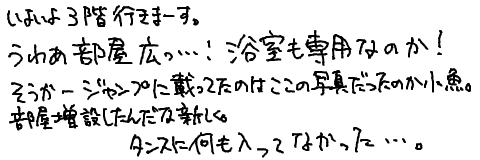 いよいよ3階行きまーす。
うわあ部屋広っ…!浴室も専用なのか!
そうかージャンプに載ってたのはここの写真だったのか小魚。
部屋増設したんだな新しく。
タンスに何も入ってなかった…。